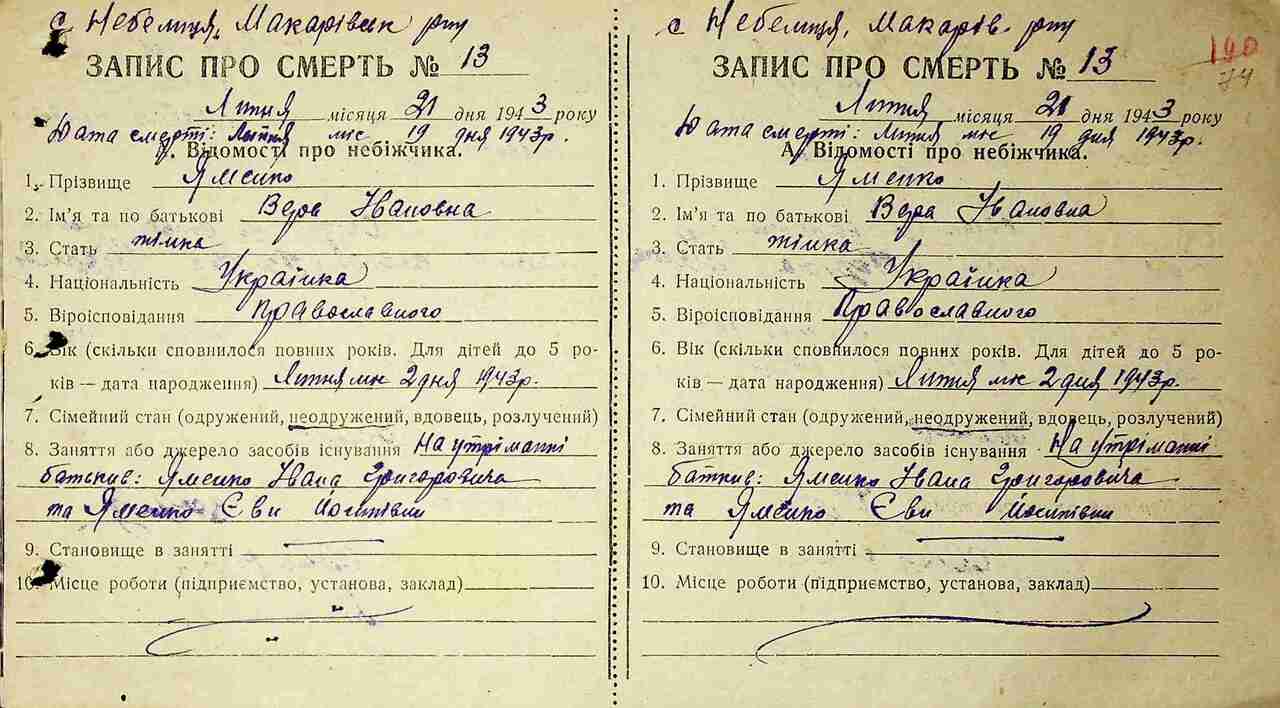 с Небелиця, Макарівськ рну
ЗАПИС ПРО СМЕРТЬ № 13
Липня місяця 21 дня 1943 року
Дата смерті: Липня мк 19 дня 1943р.
А. Відомості про небіжчика.
1. Прізвище Яменко
2. Ім’я та по батькові Вєра Івановна
3. Стать жінка
4. Національність Українка
5. Віроісповідання Православного
6. Вік (скільки сповнилося повних років. Для дітей до 5 ро-
ків — дата народження) Липня мк 2 дня 1943р.
7. Сімейний стан (одружений, неодружений, вдовець, розлучений)
8. Заняття або джерело засобів існування На утріманні
батьків: Яменко Івана Григоровича
та Яменко Єви Йосипівни
9. Становище в занятті
10. Місце роботи (підприємство, установа, заклад)
с Небелиця, Макарів. рну
190
74
ЗАПИС ПРО СМЕРТЬ № 13
Липня місяця 21 дня 1943 року
Дата смерті: Липня мк 19 дня 1943р.
А. Відомості про небіжчика.
1. Прізвище Яменко
2. Ім’я та по батькові Вєра Івановна
3. Стать жінка
4. Національність Українка
5. Віроісповідання Православного
6. Вік (скільки сповнилося повних років. Для дітей до 5 ро-
ків — дата народження) Липня мк 2 дня 1943р.
7. Сімейний стан (одружений, неодружений, вдовець, розлучений)
8. Заняття або джерело засобів існування На утріманні
батьків: Яменко Івана Григоровича
та Яменко Єви Йосипівни
9. Становище в занятті
10. Місце роботи (підприємство, установа, заклад)